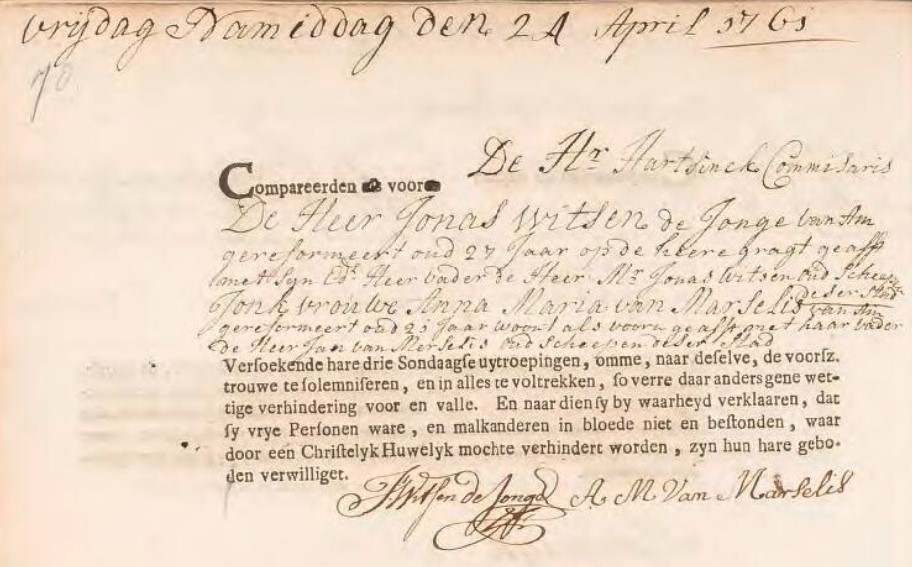 vrijdag Namiddag den 24 April 1761
De Hr Hartsinck Commisaris
Compareerden als voor
De Heer Jonas Witsen de Jonge van Am
gereformeert oud 27 Jaar op de heere gragt geasst
met Syn Eds Heer vader de Heer Mr Jonas Witsen oud Scheepen
deser Stad
Jonkvrouwe Anna Maria van Marselis van Am
gereformeert oud 23 Jaar woont als vooren geasst met haar vader
de Heer Jan van Merselis oud scheepen deser Stad
Versoekende hare drie Sondaagse uytroepingen, omme, naar deselve, de voorsz.
trouwe te solemniseren, en in alles te voltrekken, so verre daar anders gene wet-
tige verhindering voor en valle. En naar dien sy by waarheyd verklaaren, dat
sy vrye Personen ware, en malkanderen in bloede niet en bestonden, waar
door een Christelyk Huwelyk mochte verhindert worden, zyn hun hare gebo-
den verwilliget.
J Witsen de Jonge A M Van Marselis